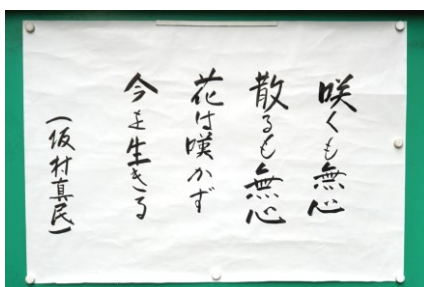 咲くも無心
散るも無心
花は嘆かず
今を生きる
(坂村真民)